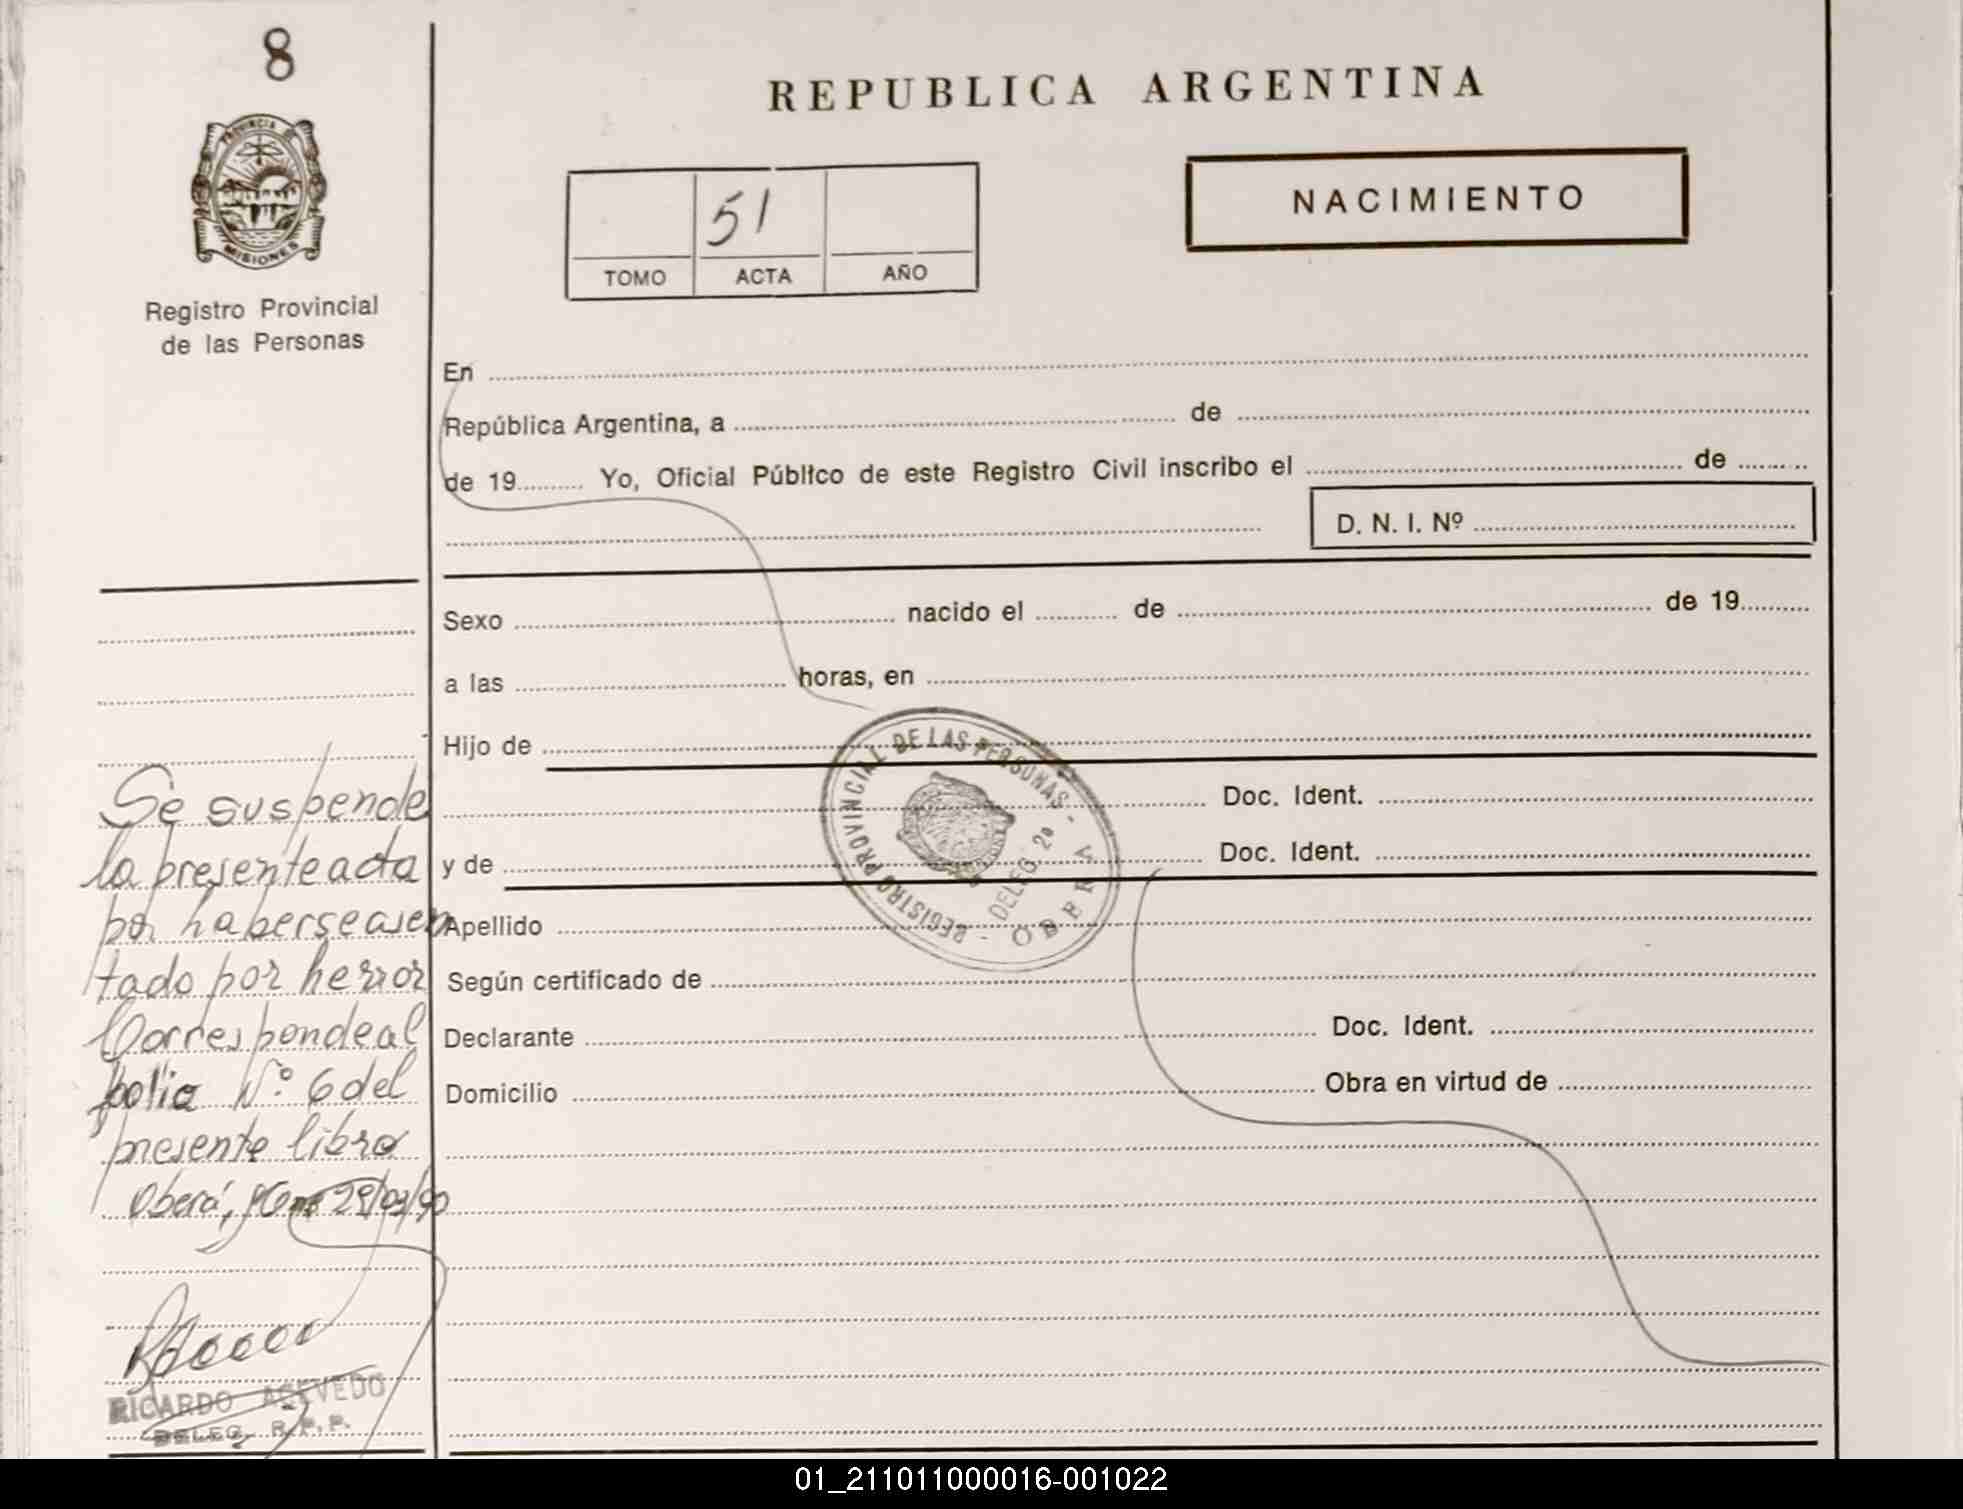 8
PROVINCIA DE
MISIONES
Registro Provincial
de las Personas
REPUBLICA ARGENTINA
51
TOMO ACTA AÑO
NACIMIENTO
En
República Argentina, a de
de 19 Yo, Oficial Público de este Registro Civil inscribo el de
D. N. I. Nº
Sexo nacido el de de 19
a las horas, en
Hijo de
Doc. Ident.
y de Doc. Ident.
Apellido
Según certificado de
Declarante Doc. Ident.
Domicilio Obra en virtud de
REGISTRO PROVINCIAL DE LAS PERSONAS
DELEG. 2ª
OBERA
Se suspende
la presente acta
por haberse asen
tado por herror
Corresponde al
folio Nº 6 del
presente libro
Oberá, 29/03/90
RICARDO ACEVEDO
DELEG. R.P.P.
01_211011000016-001022